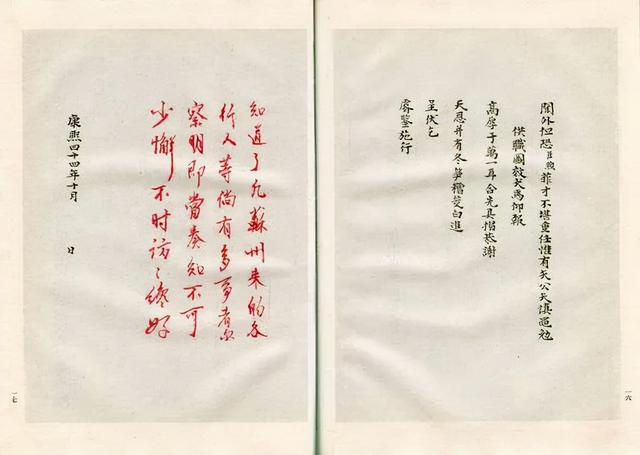 閫外但恐臣煦菲才不堪重任惟有矢公矢慎黽勉
供職圖效犬馬仰報
高厚于萬一耳合先具摺恭謝
天恩并有冬笋糟茭白進
呈伏乞
睿鑒施行
一六
知道了凡蘇州来的各
行人等倘有多事者尔
察明即當奏知不可
少懈不时访〻纔好
康熙四十四年十月 日
一七